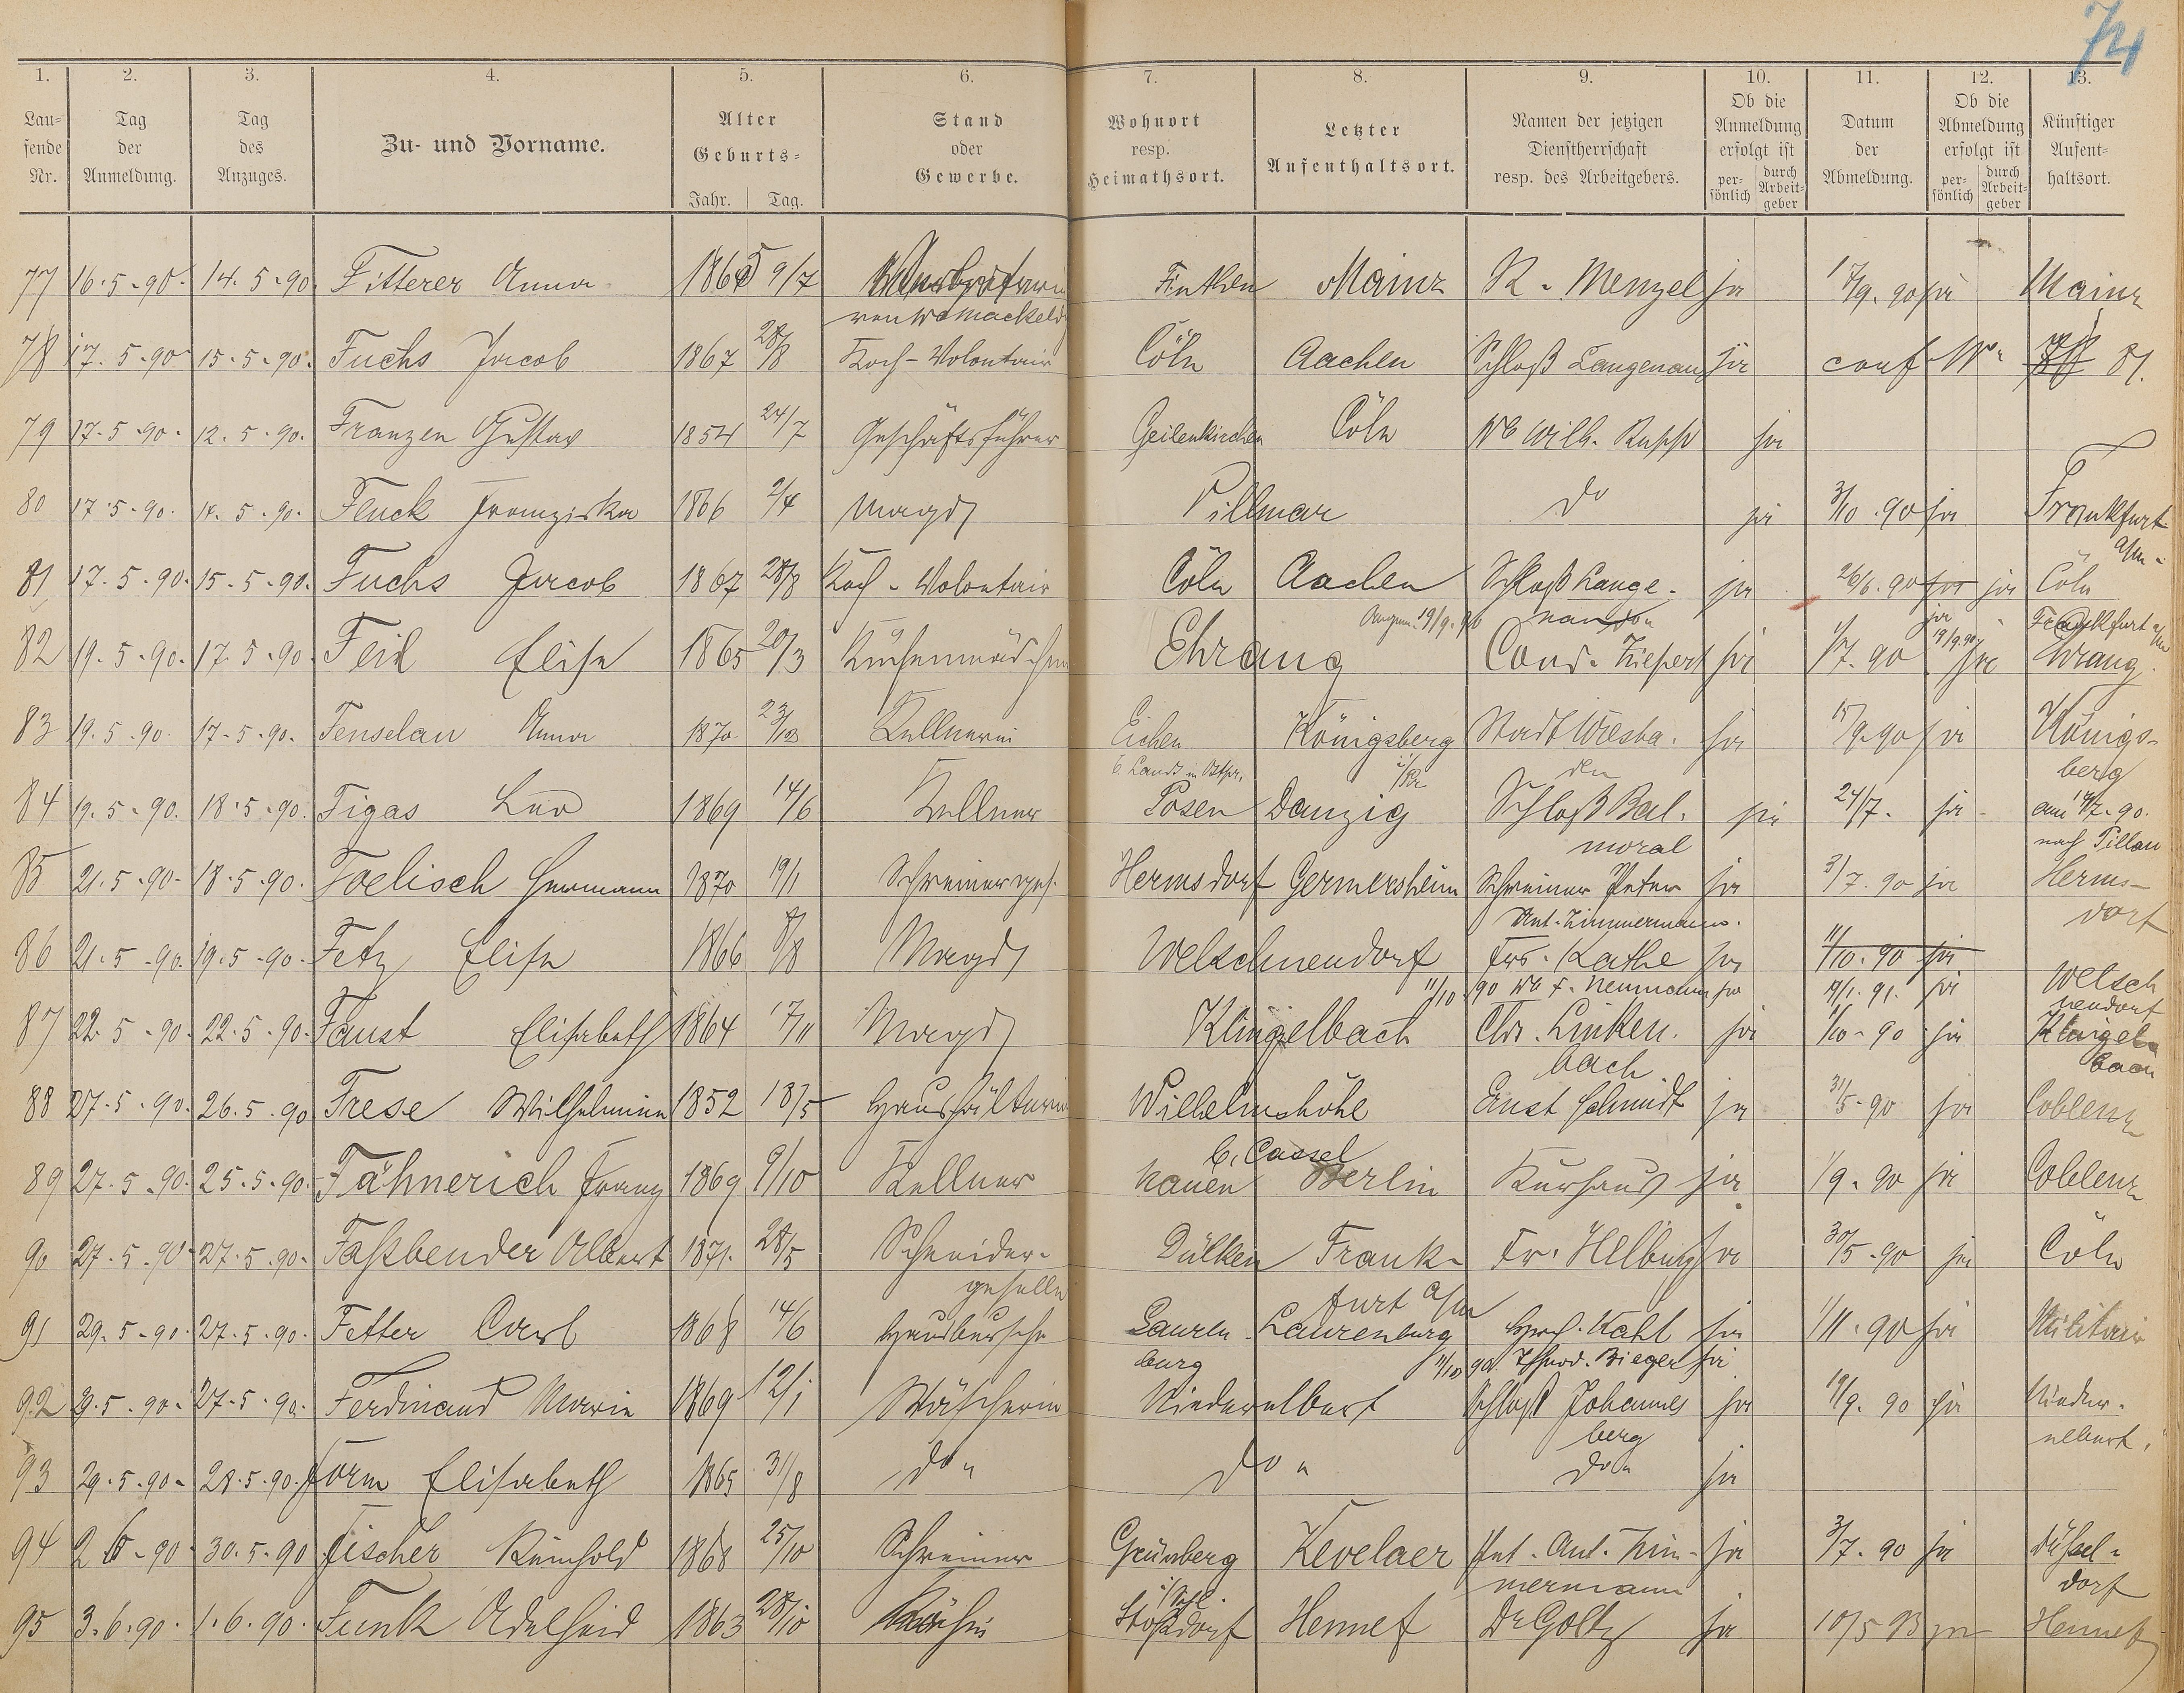 74
1. 2. 3. 4. 5. 6. 7. 8. 9. 10. 11. 12. 13.
Lau=
fende
Nr.
Tag
der
Anmeldung.
Tag
des
Anzuges.
Zu- und Vorname.
Alter
Geburts=
Jahr. Tag.
Stand
oder
Gewerbe.
Wohnort
resp.
Heimathsort.
Letzter
Aufenthaltsort.
Namen der jetzigen
Dienstherrschaft
resp. des Arbeitgebers.
Ob die
Anmeldung
erfolgt ist
per-
sönlich
durch
Arbeit-
geber
Datum
der
Abmeldung.
Ob die
Abmeldung
erfolgt ist
per-
sönlich
durch
Arbeit-
geber
Künftiger
Aufent-
haltsort.
77 16.5.90. 14.5.90. Fitterer Anna 1865 9/7 Finthen Mainz R. Menzel ja 17/9.90 ja Mainz
78 17.5.90 15.5.90. Fuchs Jacob 1867 28/8 Koch-Volontair Cöln Aachen Schloß Langenau ja conf Nr. 81.
79 17.5.90. 12.5.90. Franzen Gustav 1854 24/7 Geschäftsführer Geilenkirchen Cöln Wb Wilh. Rupp ja
80 17.5.90. 14.5.90. Fluck Franziska 1866 2/4 Magd Villmar do ja 3/10.90 ja Frankfurt
a/m.
81 17.5.90. 15.5.90. Fuchs Jacob 1867 28/8 Koch-Volontair Cöln Aachen Schloß Lange- ja 26/6.90 ja ja Cöln
nau
19/9.90 ja 19/9.90 Frankfurt a/m
82 19.5.90. 17.5.90 Feid Elise 1865 20/3 Küchenmädchen Ehrang Cond. Kiefert ja 1/7.90 ja Ehrang.
83 19.5.90. 17.5.90. Fenselau Anna 1870 23/10 Kellnerin Eichen Königsberg Stadt Wiesba- ja 15/9.90 ja Königs-
b. Landt in Ostpr. i/Pr den berg
84 19.5.90. 18.5.90. Figas Leo 1869 14/6 Kellner Posen Danzig Schloß Bal- ja 24/7. ja am 14/7.90.
moral nach Pillau
85 21.5.90. 18.5.90. Foelisch Hermann 1870 19/1 Schreinerges. Hermsdorf Germersheim Schreiner Peter ja 3/7.90 ja Herms-
Ant. Zimmermann. dorf
86 21.5.90. 19.5.90. Fetz Elise 1866 8/8 Magd Welschneudorf Frs. Kathe ja 11/10.90 ja
11/10 90 Wb F. Neumann ja 19/1.91. ja Welsch
neudorf
87 22.5.90. 22.5.90. Faust Elisabeth 1864 17/11 Magd Klingelbach Chr. Linken- ja 1/10.90 ja Klingel-
bach bach
88 27.5.90. 26.5.90 Frese Wilhelmine 1852 18/5 Haushälterin Wilhelmshöhe Ernst Schmidt ja 31/5.90 ja Coblenz
b. Cassel
89 27.5.90. 25.5.90. Fähnerich Franz 1869 9/10 Kellner Nauen Berlin Kurhaus ja 1/9.90 ja Coblenz
90 27.5.90 27.5.90. Faßbender Albert 1871. 28/5 Schneider- Dülken Frank- Fr. Helbing ja 30/5.90 ja Cöln
geselle furt a/m
91 29.5.90. 27.5.90. Fetter Carl 1868 14/6 Hausbursche Lauren- Laurenburg Hrch. Kahl ja 1/11.90 ja Militair
burg 11/10 90. Theod. Bieger ja
92 29.5.90. 27.5.90. Ferdinand Marie 1869 12/1 Wäscherin Niederelbert Schloß Johannes ja 19/9.90 ja Nieder-
berg elbert.
93 29.5.90. 28.5.90. Form Elisabeth 1865 31/8 do " do " do " ja
94 2.6.90 30.5.90 Fischer Reinhold 1868 25/10 Schreiner Grünberg Kevelaer Pet. Ant. Zim- ja 3/7.90 ja Düssel-
i/Schl. mermann dorf
95 3.6.90. 1.6.90. Funk Adelheid 1863 28/10 Köchin Stoßdorf Hennef Dr Goltz ja 10/5 93 ja Hennef